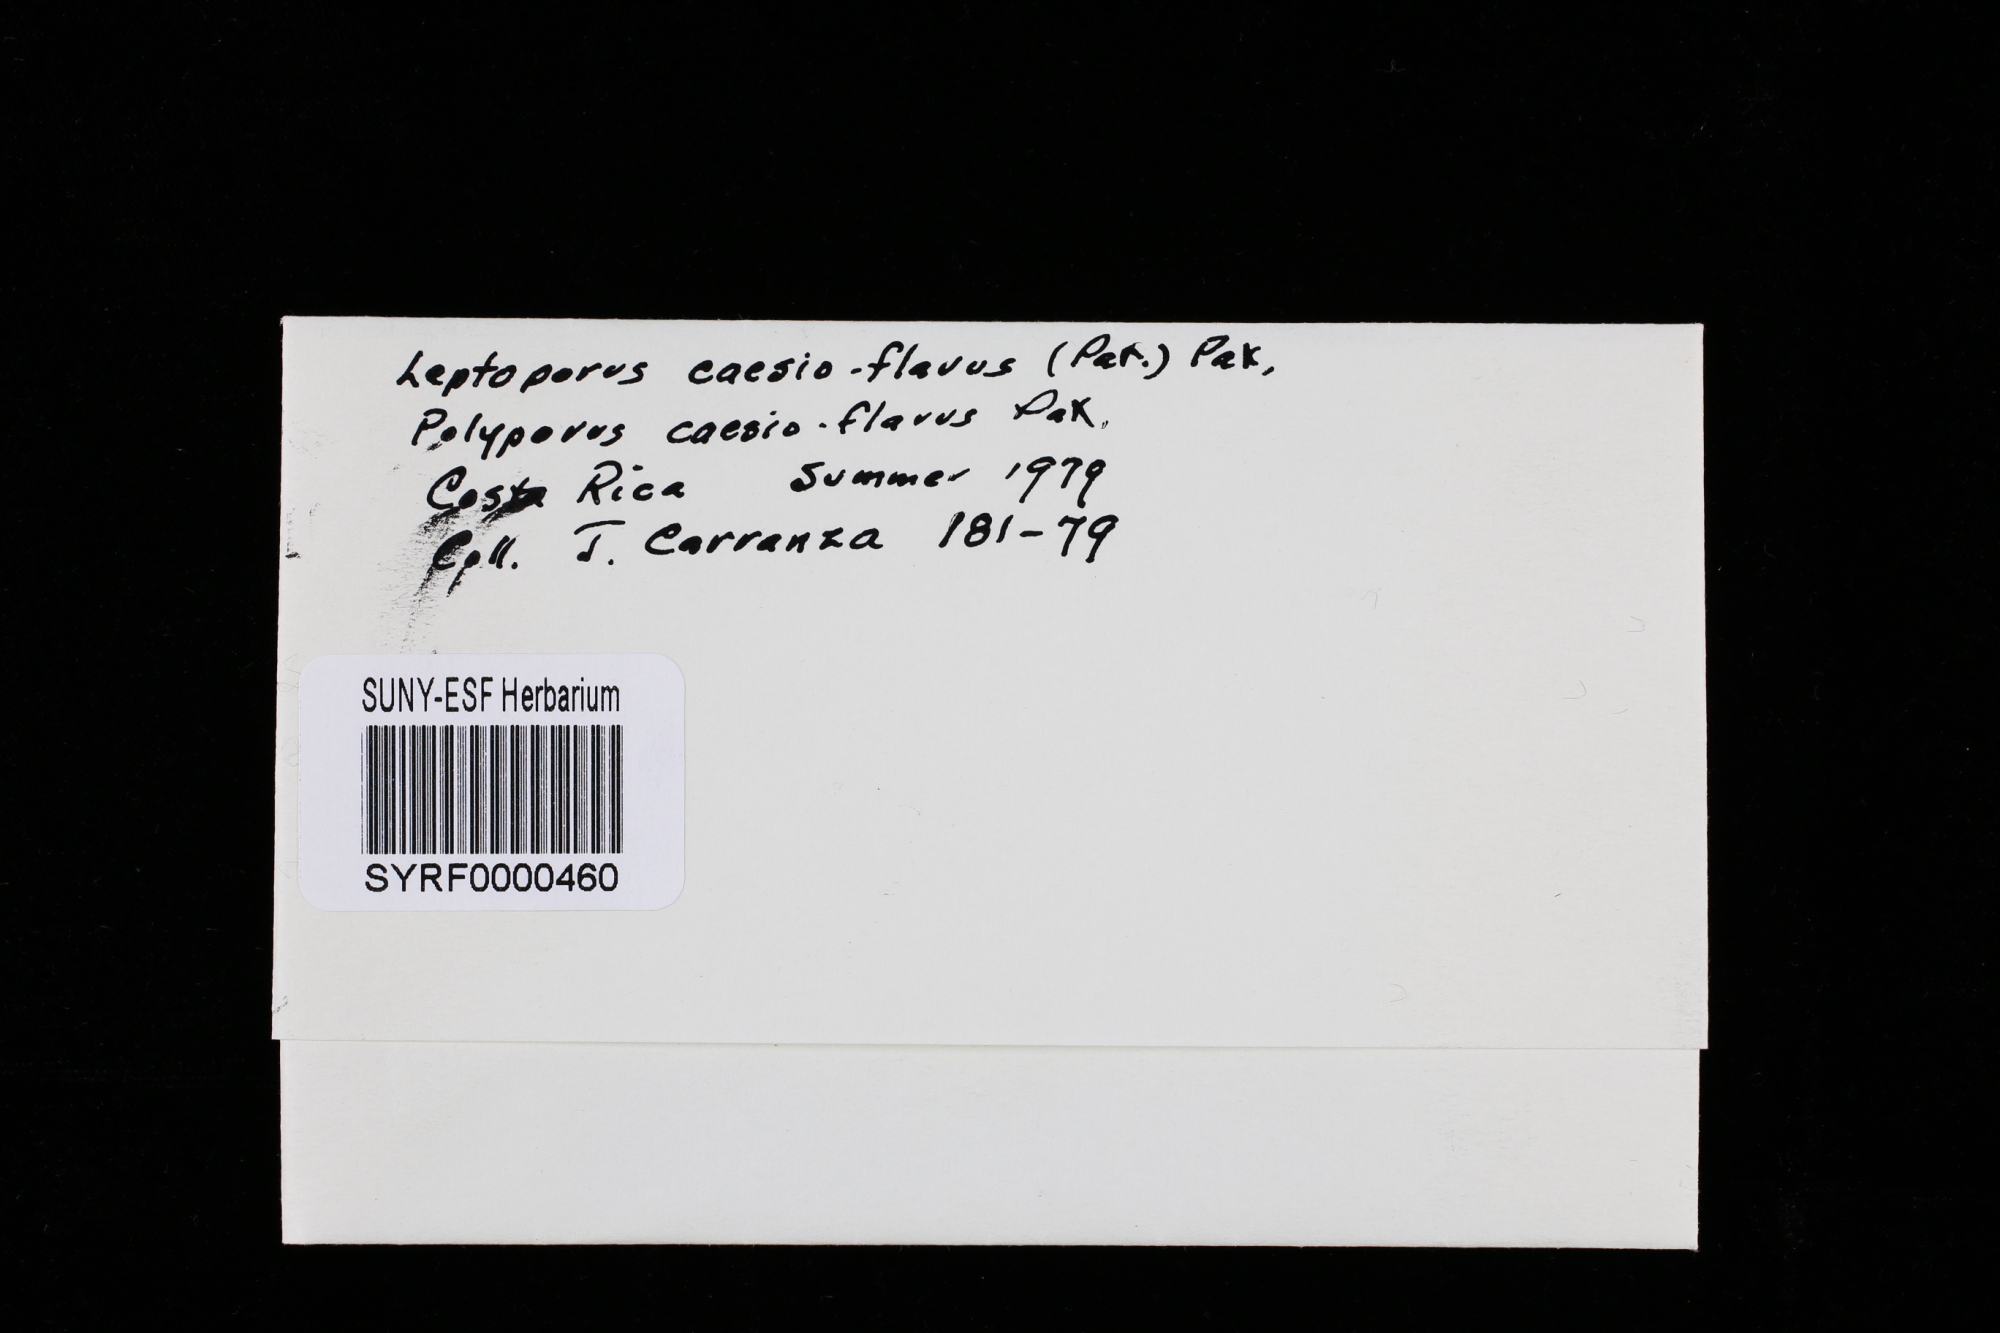 Leptoporus caesio-flavus (Pat.) Pat.
Polyporus caesio-flavus Pat.
Costa Rica Summer 1979
Coll. J. Carranza 181-79
SUNY-ESF Herbarium
SYRF0000460